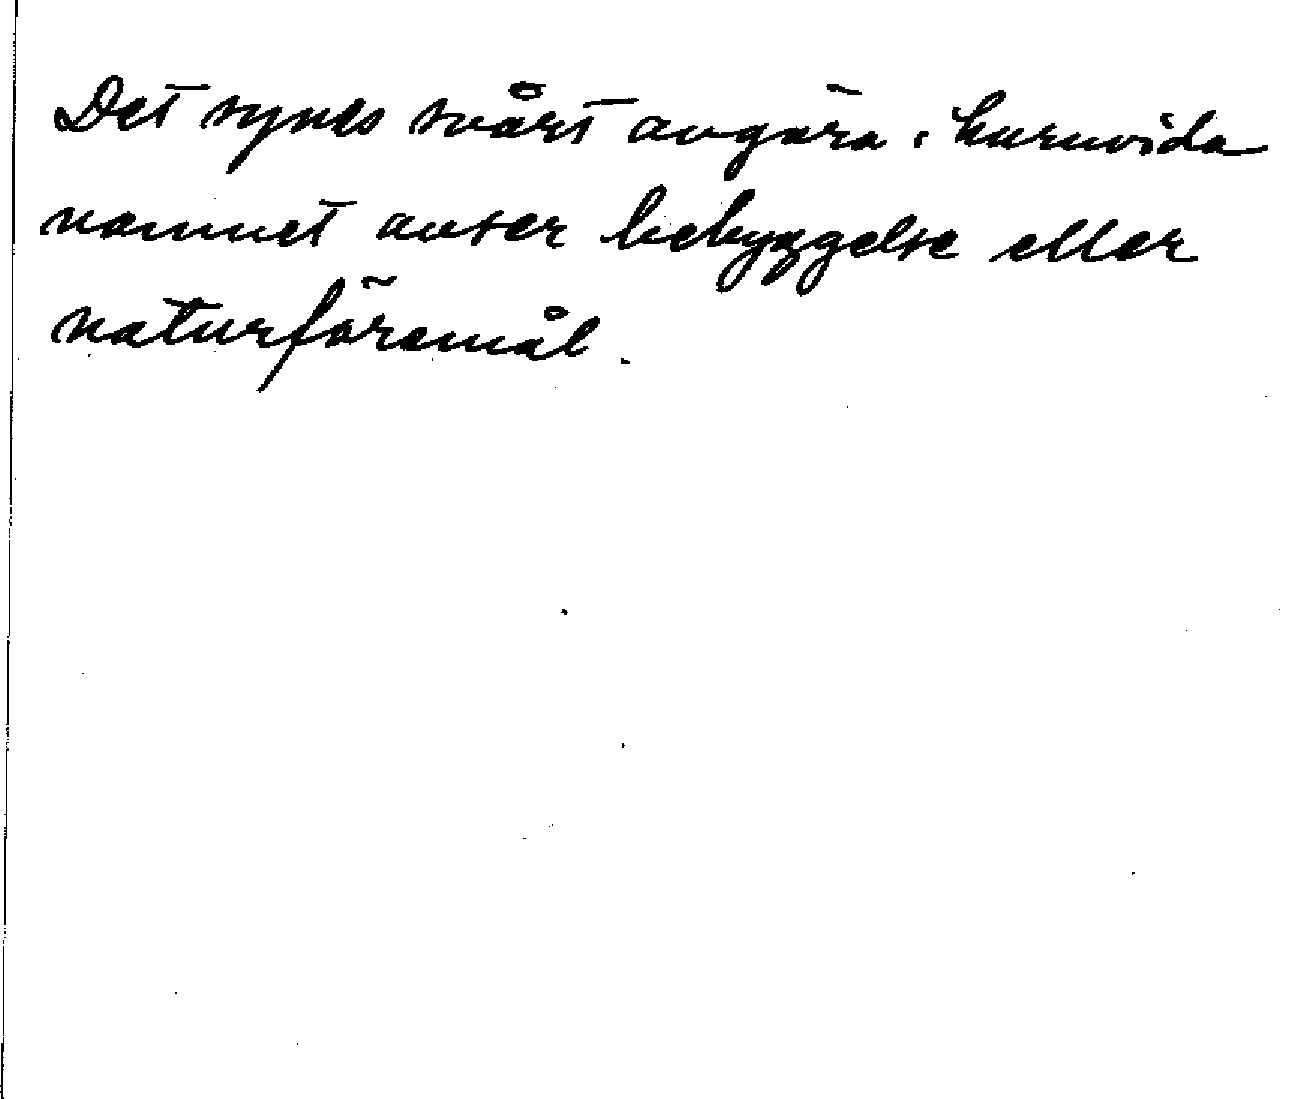 Det synes svårt avgöra, huruvida
namnet avser bebyggelse eller
naturföremål.